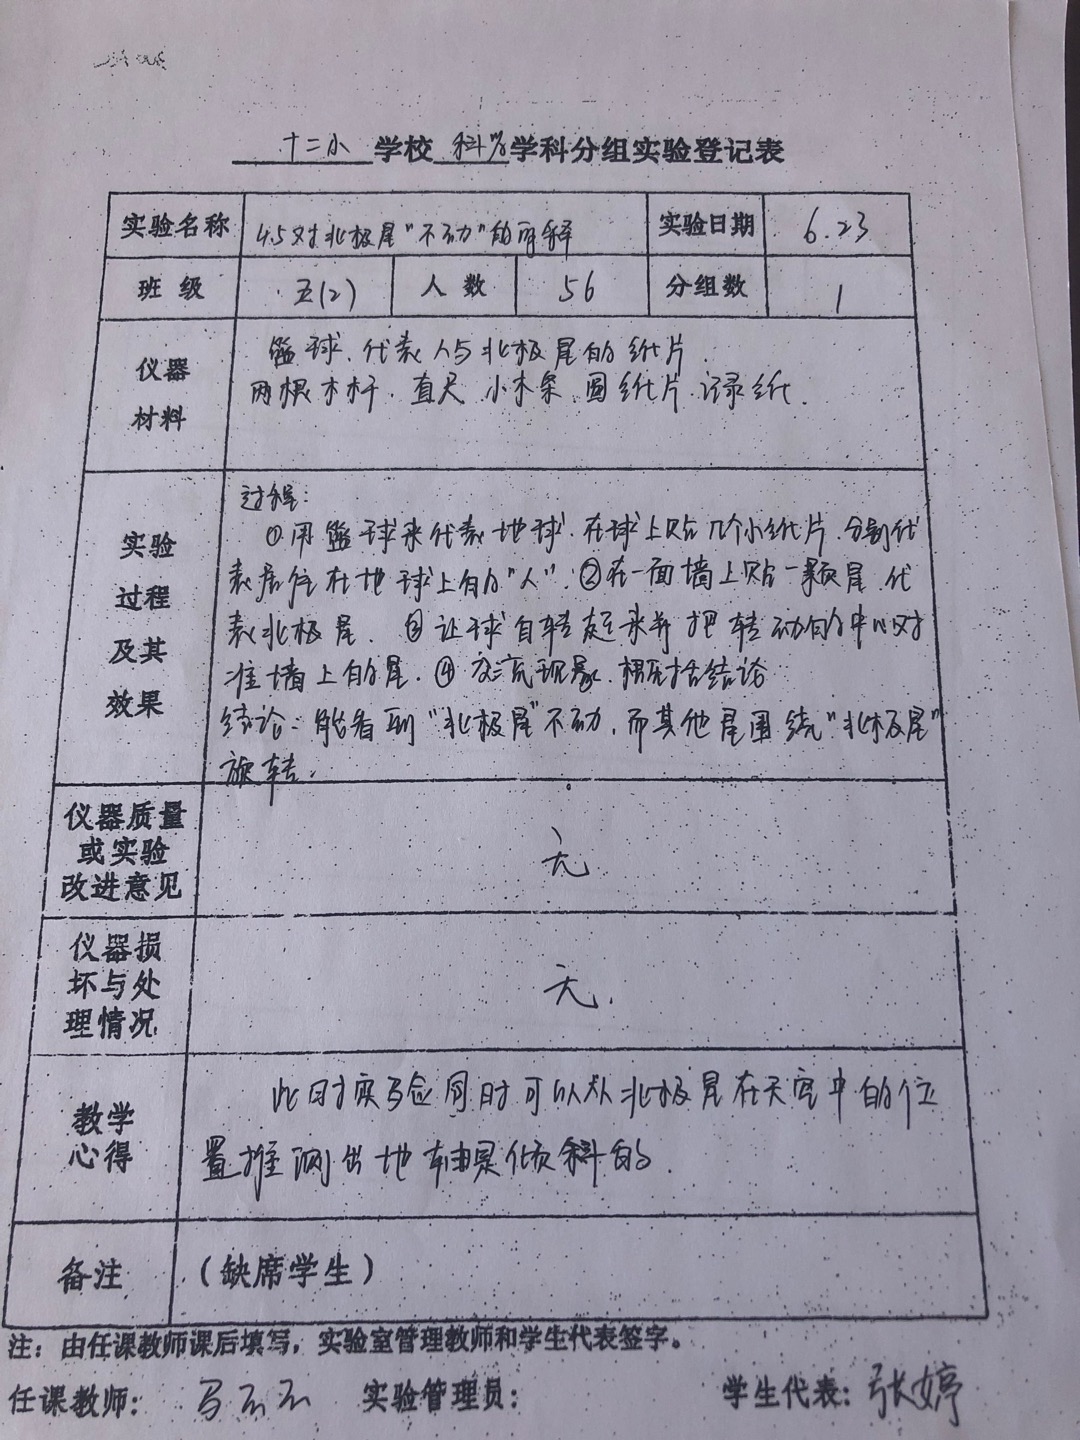 十二小 学校 科学 学科分组实验登记表
实验名称 4.5对北极星"不动"的解释 实验日期 6.23
班级 五(2) 人数 56 分组数 1
仪器材料
篮球、代表人与北极星的纸片.
两根木杆、直尺 小木条 圆纸片 记录纸.
实验过程及其效果
过程:
①用篮球来代表地球,在球上贴几个小纸片,分别代
表居住在地球上的"人".②在一面墙上贴一颗星,代
表北极星. ③让球自转起来并把转动的中心对
准墙上的星.④交流现象,概括结论
结论:能看到"北极星"不动,而其他星围绕"北极星"
旋转.
仪器质量或实验改进意见
无
仪器损坏与处理情况
无.
教学心得
此时实验同时可以从北极星在天空中的位
置推测出地轴是倾斜的.
备注 (缺席学生)
注:由任课教师课后填写,实验室管理教师和学生代表签字。
任课教师: 实验管理员: 学生代表:张婷